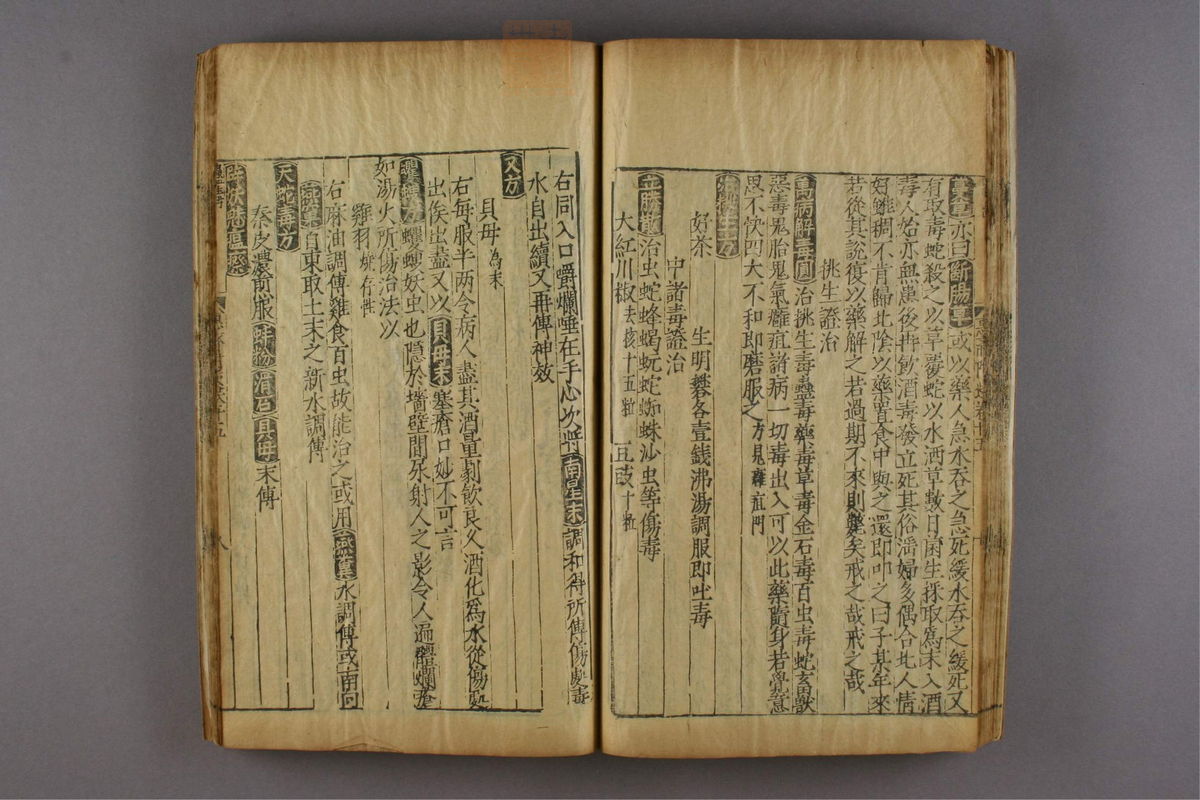 蔓亦曰斷腸草或以藥人急水吞之急死緩水吞之緩死又
有取毒蛇殺之以草覆蛇以水洒草數日菌生採取爲末入酒
毒人始亦無患後再飲酒毒發立死其俗淫婦多偶合北人情
好雖稠不肯歸北陰以藥置食中與之還即叩之曰子某年來
若從其說復以藥解之若過期不來則斃矣戒之哉戒之哉
挑生證治
萬病解毒圓治挑生毒蠱毒藥毒草毒金石毒百虫毒蛇玄獸
惡毒鬼胎鬼氣癰疽諸病一切毒出入可以此藥隨身若覺意
思不快四大不和即磨服之方見癰疽門
挑生方
好茶 生明礬各壹錢沸湯調服即吐毒
中諸毒證治
立勝散治虫蛇蜂蝎蚖蛇蜘蛛沙虫等傷毒
大紅川椒去核十五粒 豆豉十粒
右同入口嚼爛唾在手心次將南星末調和得所傅傷處毒
水自出續又再傅神效
又方
貝母為末
右每服半兩令病人盡其酒量劇飲良久酒化爲水從傷處
出俟出盡又以貝母末塞瘡口妙不可言
蠼螋方蠼螋妖虫也隱於墻壁間尿射人之影令人遍體爛瘡
如湯火所傷治法以
雞羽燒存性
右麻油調傅雞食百虫故能治之或用燕窠水調傅或南回
燕窠自東取土末之新水調傅
天蛇毒方
秦皮濃煎服蚌粉滑石貝母末傅
八